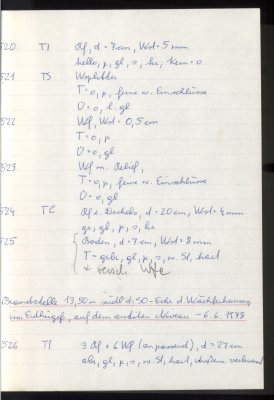 520 TI Rf, d = 7cm, Wst = 5 mm
hello, μ, gl, s, hr, Kern = o
521 TS Wsplitter
T = o, μ, feine w. Einschlüsse
O = o, l. gl
522 Wf, Wst = 0,5 cm
T = o, μ
O = o, gl
523 Wf m. Relief,
T = o, μ, feine w. Einschlüsse
O = o, gl
524 TC Rf e. Deckels, d = 20cm, Wst = 4mm
gr, gl, μ, s, hr
525 Boden, d = 7cm, Wst = 8mm
T = gebr, gl, μ, s, w. St, hart
+ versch. Wfe
Brandstelle 13,50 m südl. d. SO-Ecke d. Wächterhauses
im Erdhügel, auf dem antiken Niveau - 6. 6. 1978
526 TI 3 Rf + 6 Wf (anpassend), d = 27cm
gl, μ, s, w. St, hart, verbrannt